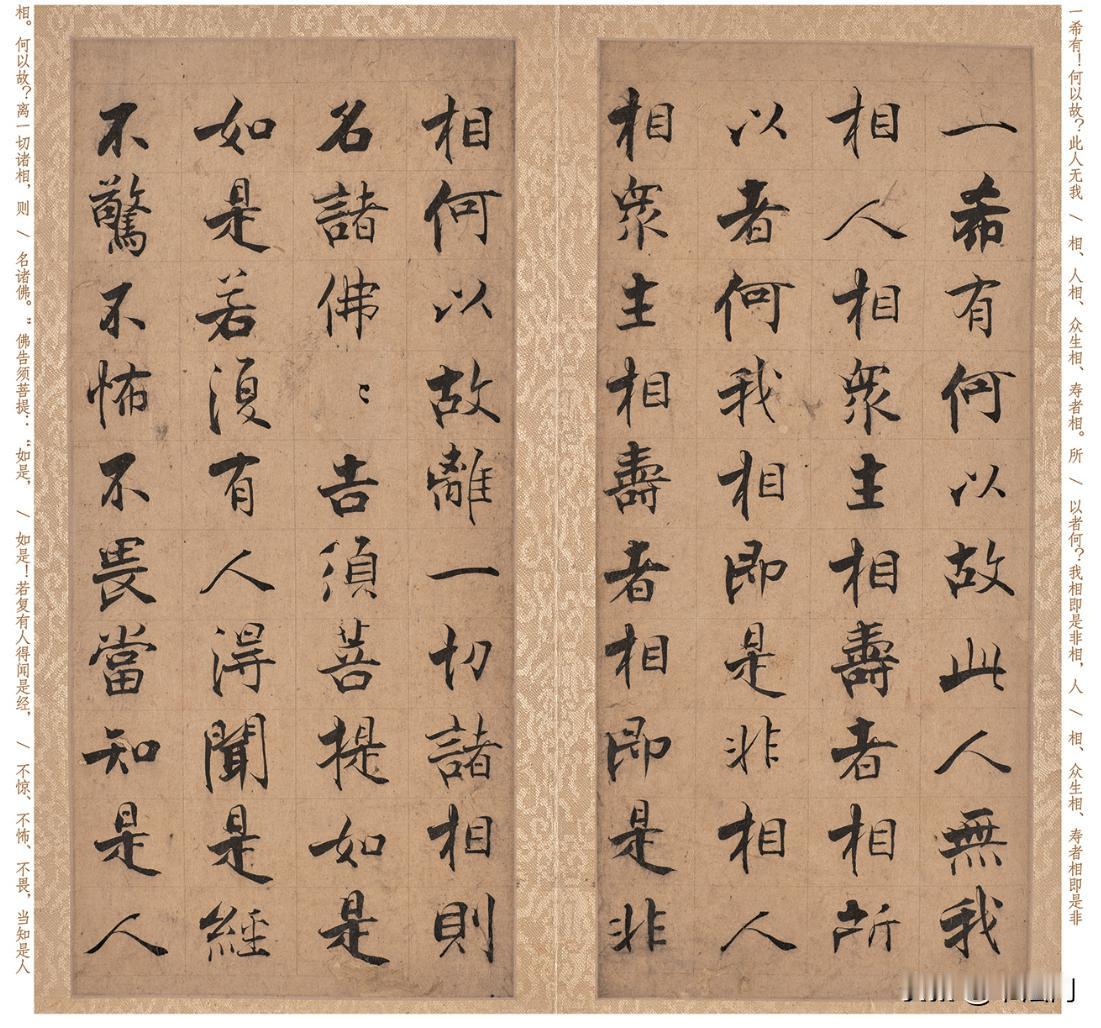 一希有！何以故？此人无我 \ 相、人相、众生相、寿者相。所 \ 以者何？我相即是非相，人 \ 相、众生相、寿者相即是非
一希有何以故此人無我
相人相衆生相壽者相所
以者何我相即是非相人
相衆生相壽者相即是非
相何以故離一切諸相則
名諸佛〻告須菩提如是
如是若復有人得聞是經
不驚不怖不畏當知是人
相。何以故？离一切诸相，则 \ 名诸佛。”佛告须菩提：“如是， \ 如是！若复有人得闻是经， \ 不惊、不怖、不畏，当知是人